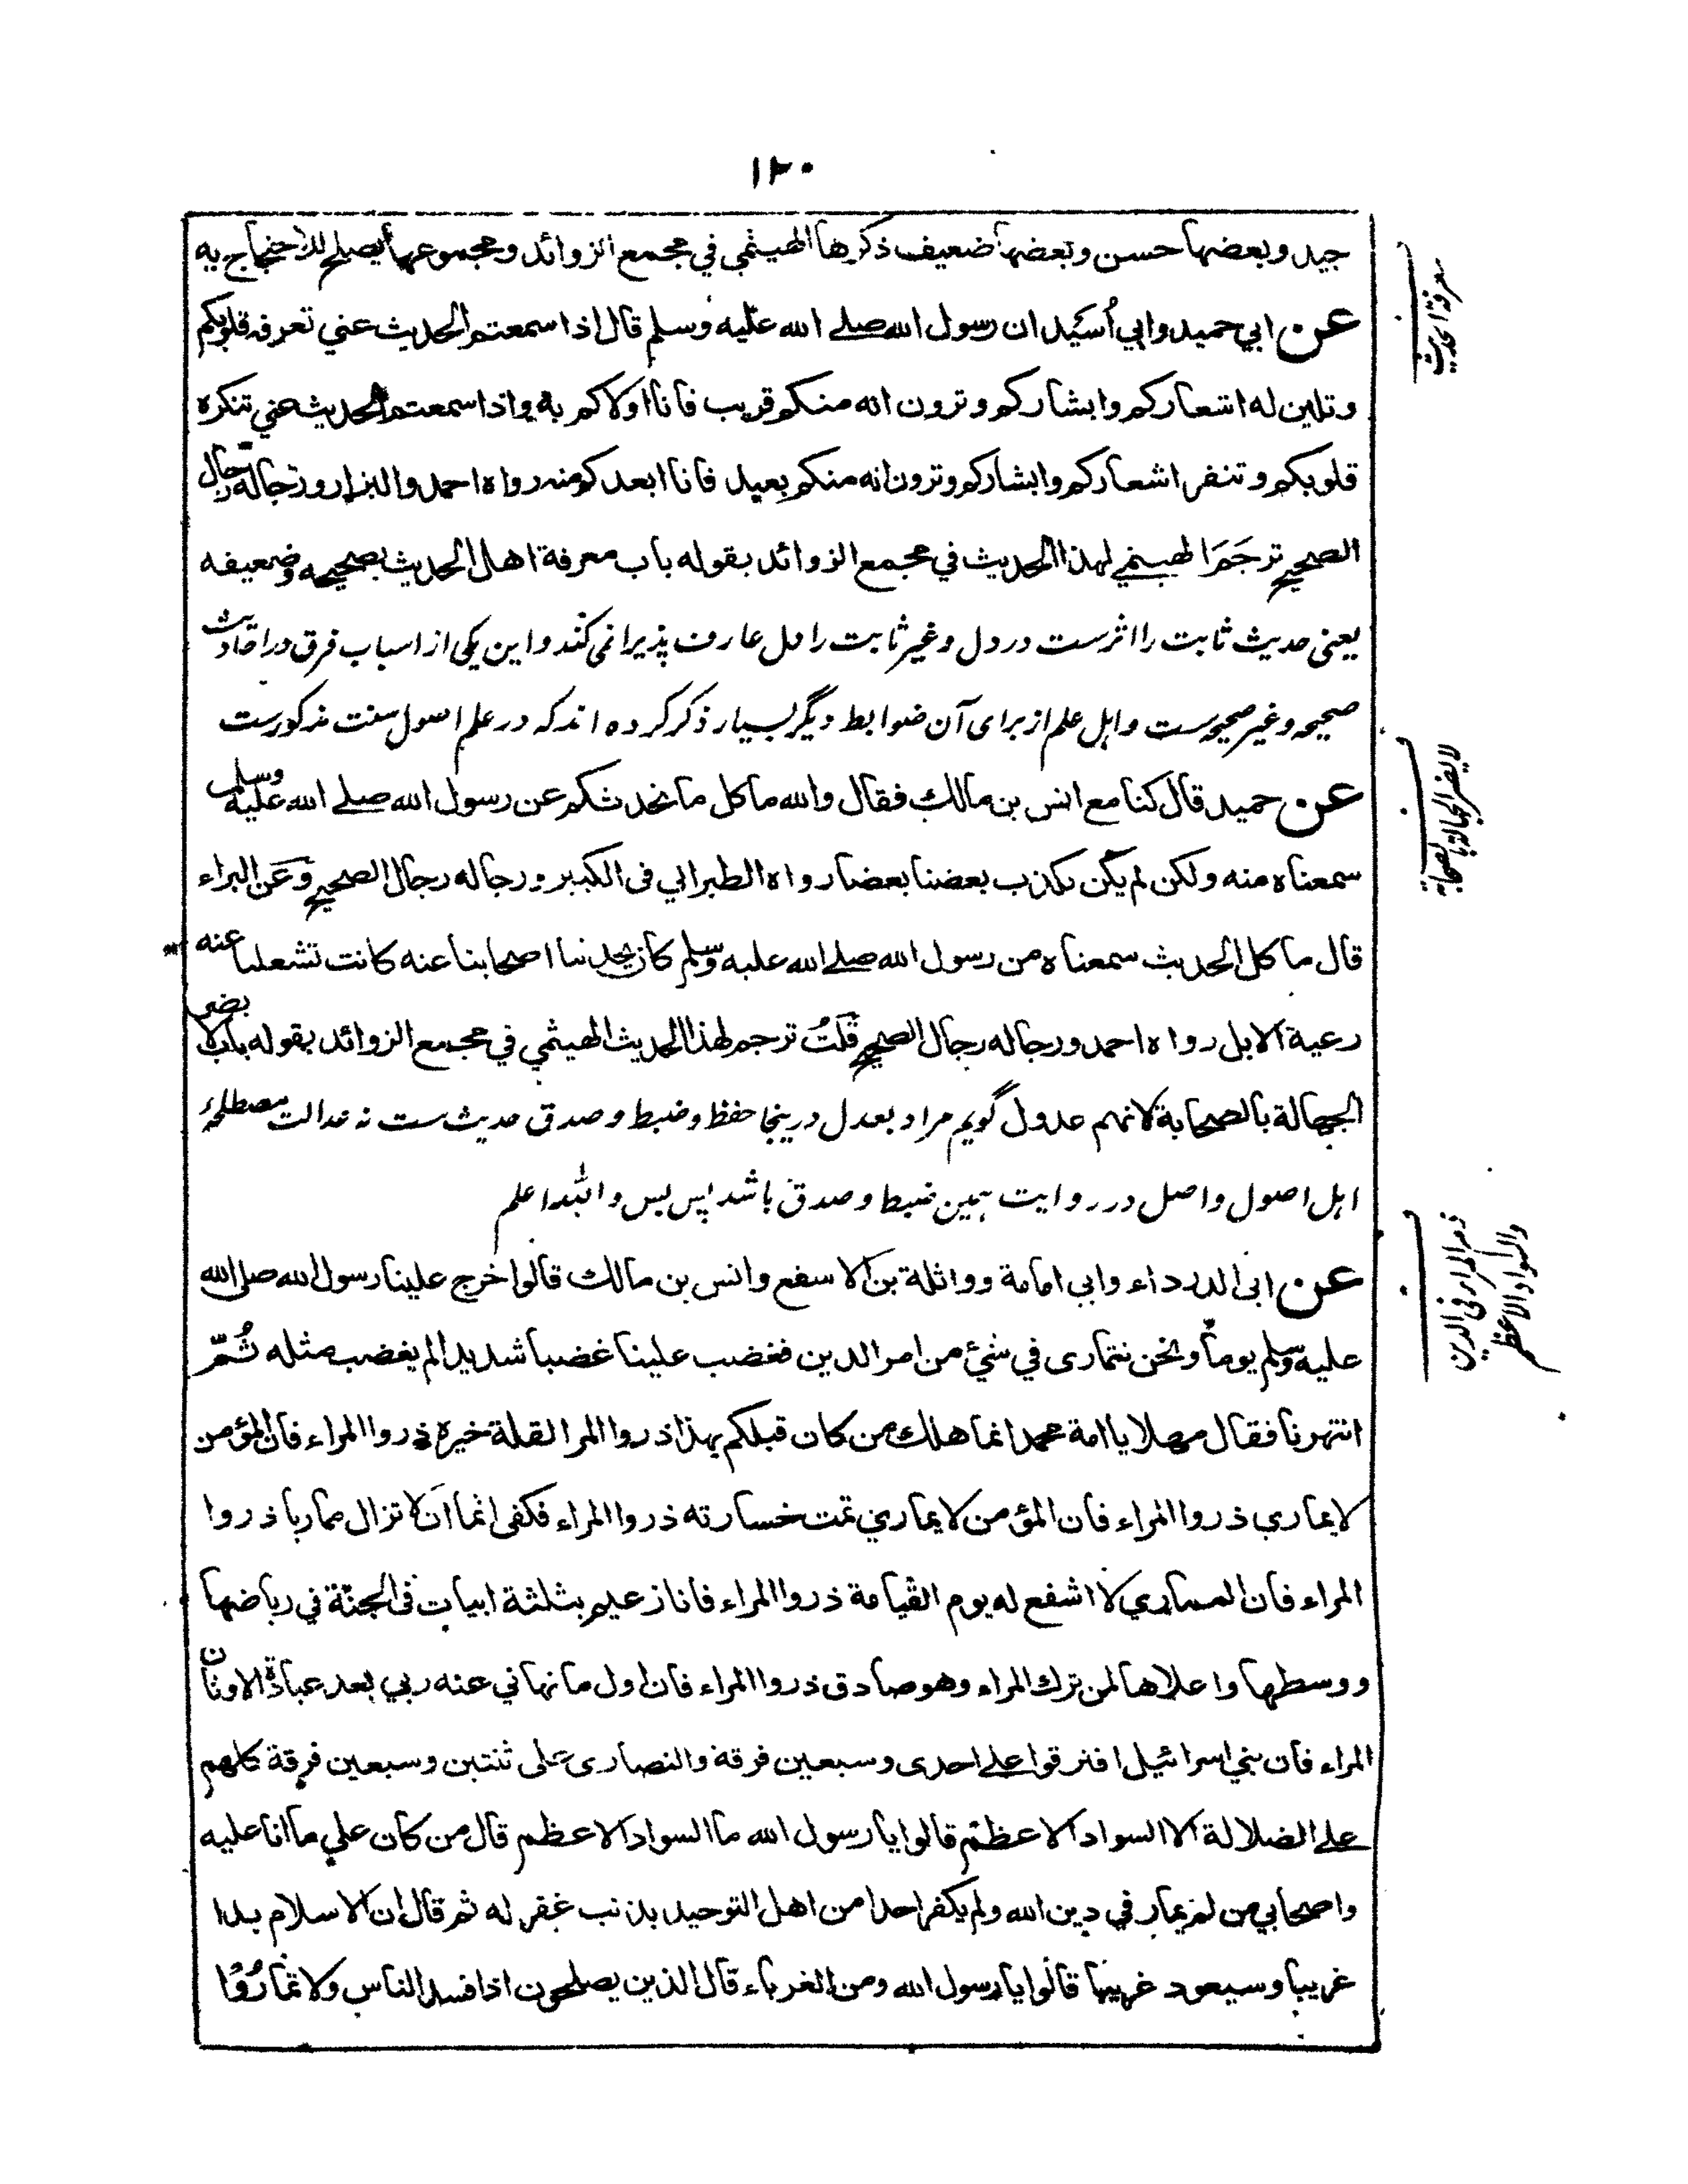 ١٢٠
جيد وبعضها حسن وبعضها ضعيف ذكرها الهيثمي في مجمع الزوائد ومجموعها يصلح للاحتجاج به
عن ابي حميد وابي أُسَيْد ان رسول الله صلے الله عليه وسلم قال اذا سمعتم الحديث عني تعرفه قلوبكم
وتلين له اشعاركم وابشاركم وترون انه منكم قريب فانا اولاكم به واذا سمعتم الحديث عني تنكره
قلوبكم وتنفر اشعاركم وابشاركم وترون انه منكم بعيد فانا ابعدكم منه رواه احمد والبزار ورجاله رجال
الصحيح ترجم الهيثمي لهذا الحديث في مجمع الزوائد بقوله باب معرفة اهل الحديث بصحيحه وضعيفه
یعنی حدیث ثابت را اثرست در دل و غیر ثابت را دل عارف پذیرا نمی کند و این یکی از اسباب فرق در احادیث
صحیحه و غیر صحیحه ست و اہل علم از برای آن ضوابط دیگر بسیار ذکر کرده اند که در علم اصول سنت مذکورست
عن حميد قال كنا مع انس بن مالك فقال والله ما كل ما نحدثكم عن رسول الله صلے الله عليه وسلم
سمعناه منه ولكن لم يكن يكذب بعضنا بعضا رواه الطبراني فى الكبير ورجاله رجال الصحيح وَعَن البراء
قال ما كل الحديث سمعناه من رسول الله صلے الله عليه وسلم كان يحدثنا اصحابنا عنه كانت تشغلنا عنه
رعية الابل رواه احمد ورجاله رجال الصحيح قلتُ ترجم لهذا الحديث الهيثمي في مجمع الزوائد بقوله باب لا يضر
الجهالة بالصحابة لانهم عدول گویم مراد بعدل درینجا حفظ و ضبط و صدق حدیث ست نه عدالت مصطلحۂ
اہل اصول و اصل در روایت ہمین ضبط و صدق باشد پس بس واللہ اعلم
عن ابى الدرداء وابي امامة وواثلة بن الاسفع وانس بن مالك قالوا خرج علينا رسول الله صلى الله
عليه وسلم يوماً ونحن نتمارى في شيء من امر الدين فغضب علينا غضبا شديدا لم يغضب مثله ثُمّ
انتهرنا فقال مهلا يا امة محمد انما هلك من كان قبلكم بهذا ذروا المرا لقلة خيره ذروا المراء فان المؤمن
لا يماري ذروا المراء فان المؤمن لا يماري تمت خسارته ذروا المراء فكفى اثما ان لا تزال مماريا ذروا
المراء فان المماري لا اشفع له يوم القيامة ذروا المراء فانا زعيم بثلثة ابيات فى الجنّة في رياضها
ووسطها واعلاها لمن ترك المراء وهو صادق ذروا المراء فان اول ما نهاني عنه ربي بعد عبادة الاوثان
المراء فان بني اسرائيل افترقوا علے احدى وسبعين فرقة والنصارى على ثنتين وسبعين فرقة كلهم
علے الضلالة الا السواد الاعظم قالوا يا رسول الله ما السواد الاعظم قال من كان علي ما انا عليه
واصحابي من لم يمار في دين الله ولم يكفر احدا من اهل التوحيد بذنب غفر له ثم قال ان الاسلام بدا
غريبا وسيعود غريبا قالوا يا رسول الله ومن الغرباء قال الذين يصلحون اذا فسد الناس ولا تمارُوْا
معرفة الحديث
لا يضر الجهالة بالصحابة
ذم المراء فى الدين
والسواد الاعظم